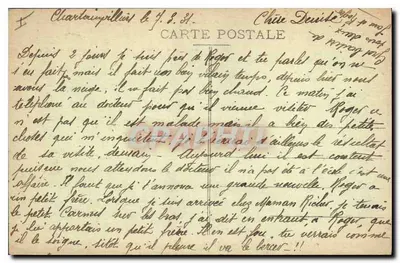 Chartainvilliers le 7.3.31. Chère Denise
CARTE POSTALE
Depuis 2 jours je suis près de Roger et tu parles qu'on ne
s'en fait, mais il fait un bien vilain temps, depuis hier nous
avons la neige, il ne fait pas bien chaud. Ce matin, j'ai
téléphoné au docteur pour qu'il vienne visiter Roger ce
n'est pas qu'il est malade mais il a bien des petites
choses qui m'inquiètent le résultat
de sa visite, demain. Aujourd'hui il est content
puisque nous attendons le docteur il n'a pas été à l'école c'est une
affaire. Il faut que je t'annonce une grande nouvelle, Roger a
un petit frère. Lorsque je suis arrivée chez Maman je tenais
le petit sur les bras, j'ai dit en entrant à Roger, que
je lui apportais un petit frère. Il en est fou, tu verrais comme
il le soigne, sitôt qu'il pleure il va le bercer - !!